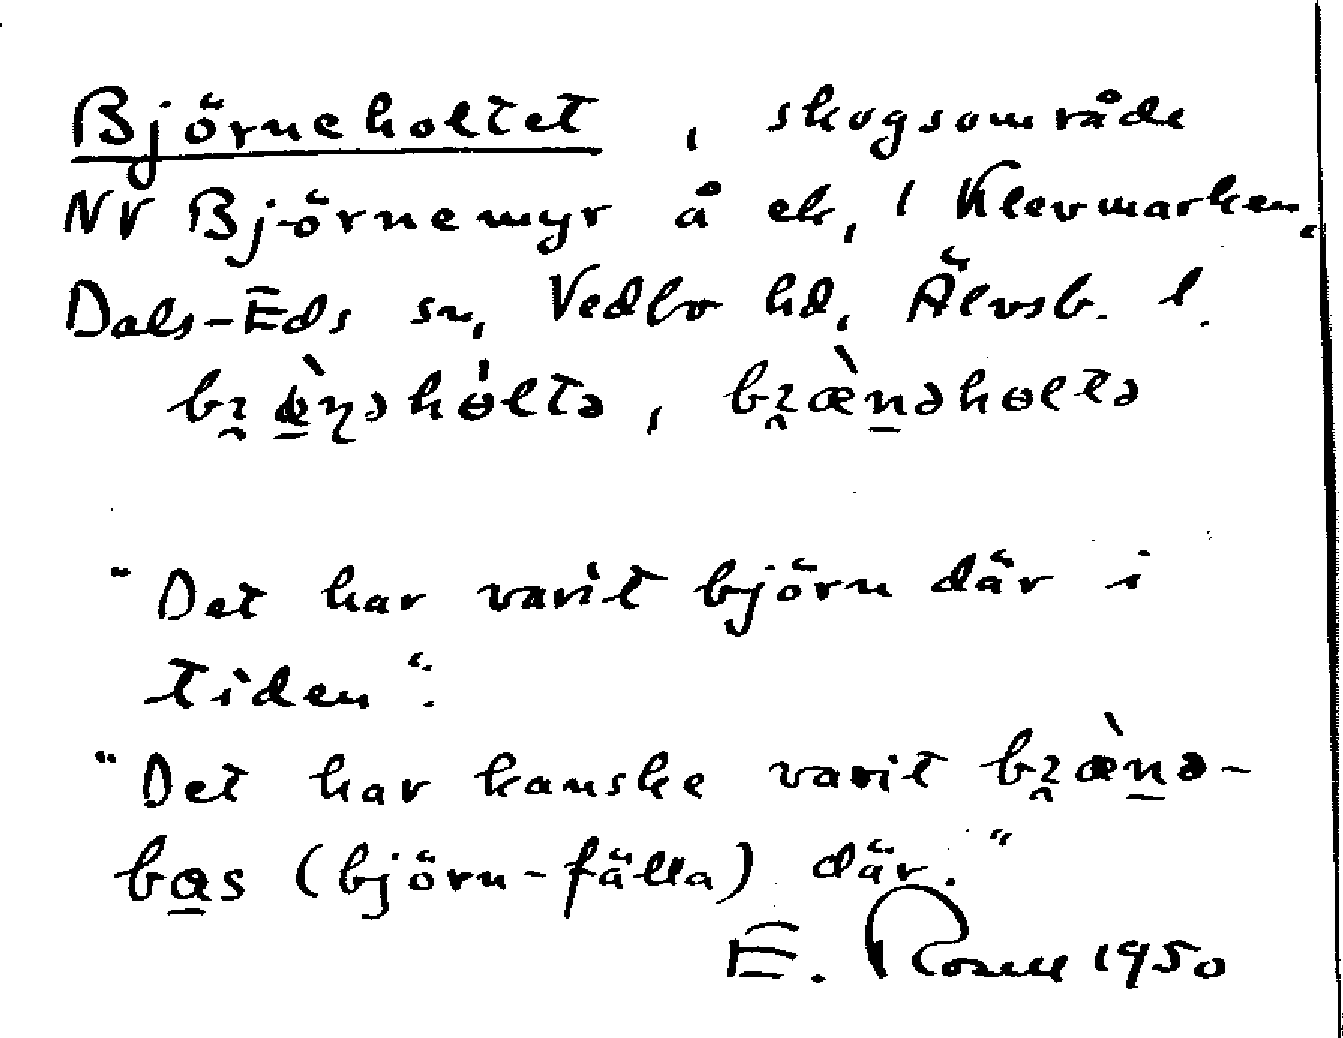 Björneholtet, skogsområde
NV Björnemyr å ek, i Klevmarken,
Dals-Eds sn, Vedbo hd, Älvsb. l.
"Det har varit björn där i
tiden".
"Det har kanske varit
bas (björn-fälla) där."
E. Rosell 1950